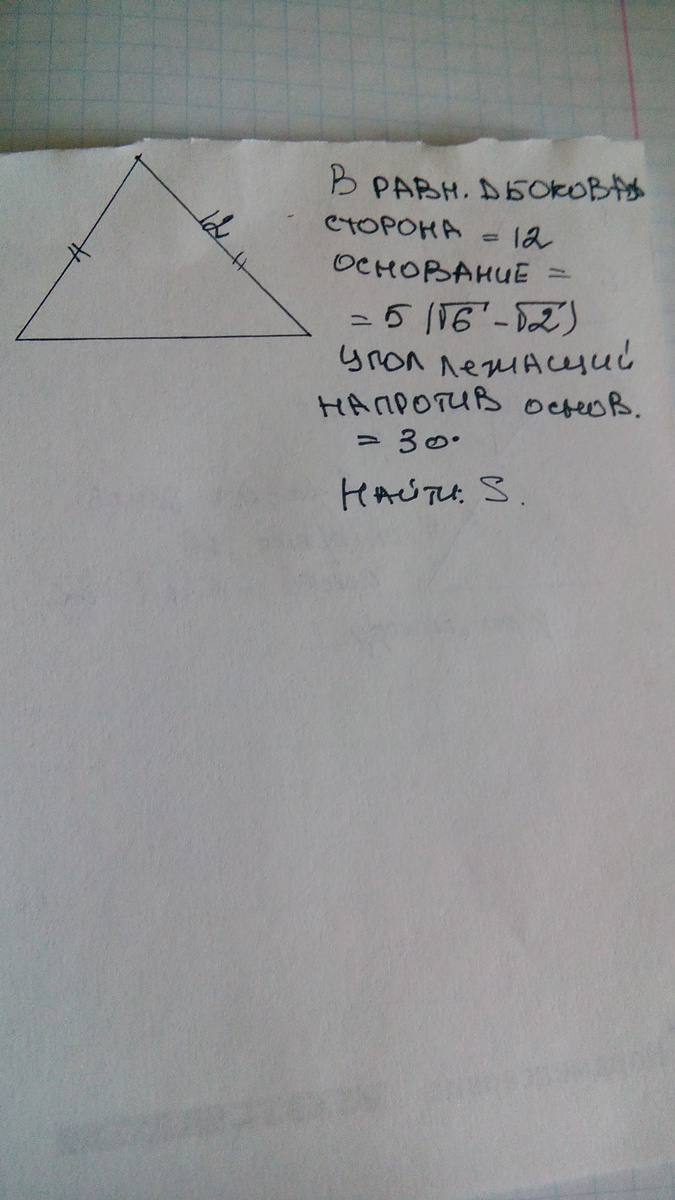 12
В РАВН. Δ БОКОВАЯ
СТОРОНА = 12
ОСНОВАНИЕ =
= 5 (√6 - √2)
УГОЛ ЛЕЖАЩИЙ
НАПРОТИВ ОСНОВ.
= 30°
НАЙТИ: S.